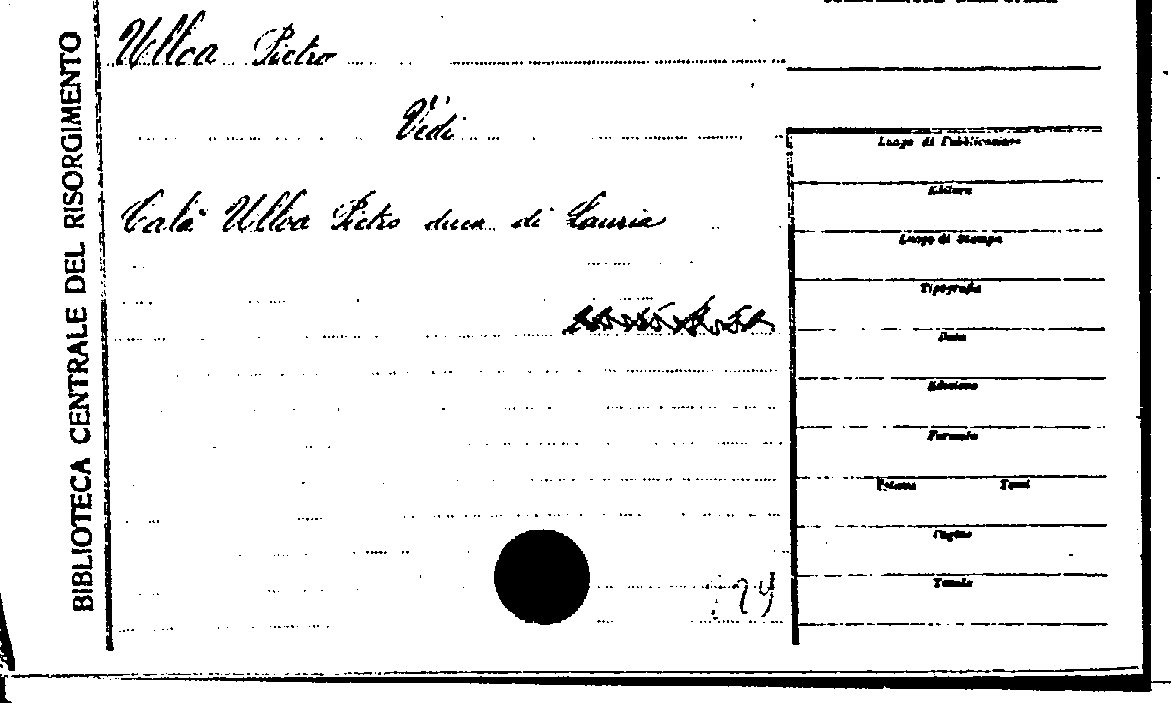 BIBLIOTECA CENTRALE DEL RISORGIMENTO
Ulloa Pietro
Vedi
Calà Ulloa Pietro duca di Lauria
Luogo di Pubblicazione
Editore
Luogo di Stampa
Tipografia
Data
Edizione
Formato
Volume Tomi
Pagine
Tavole